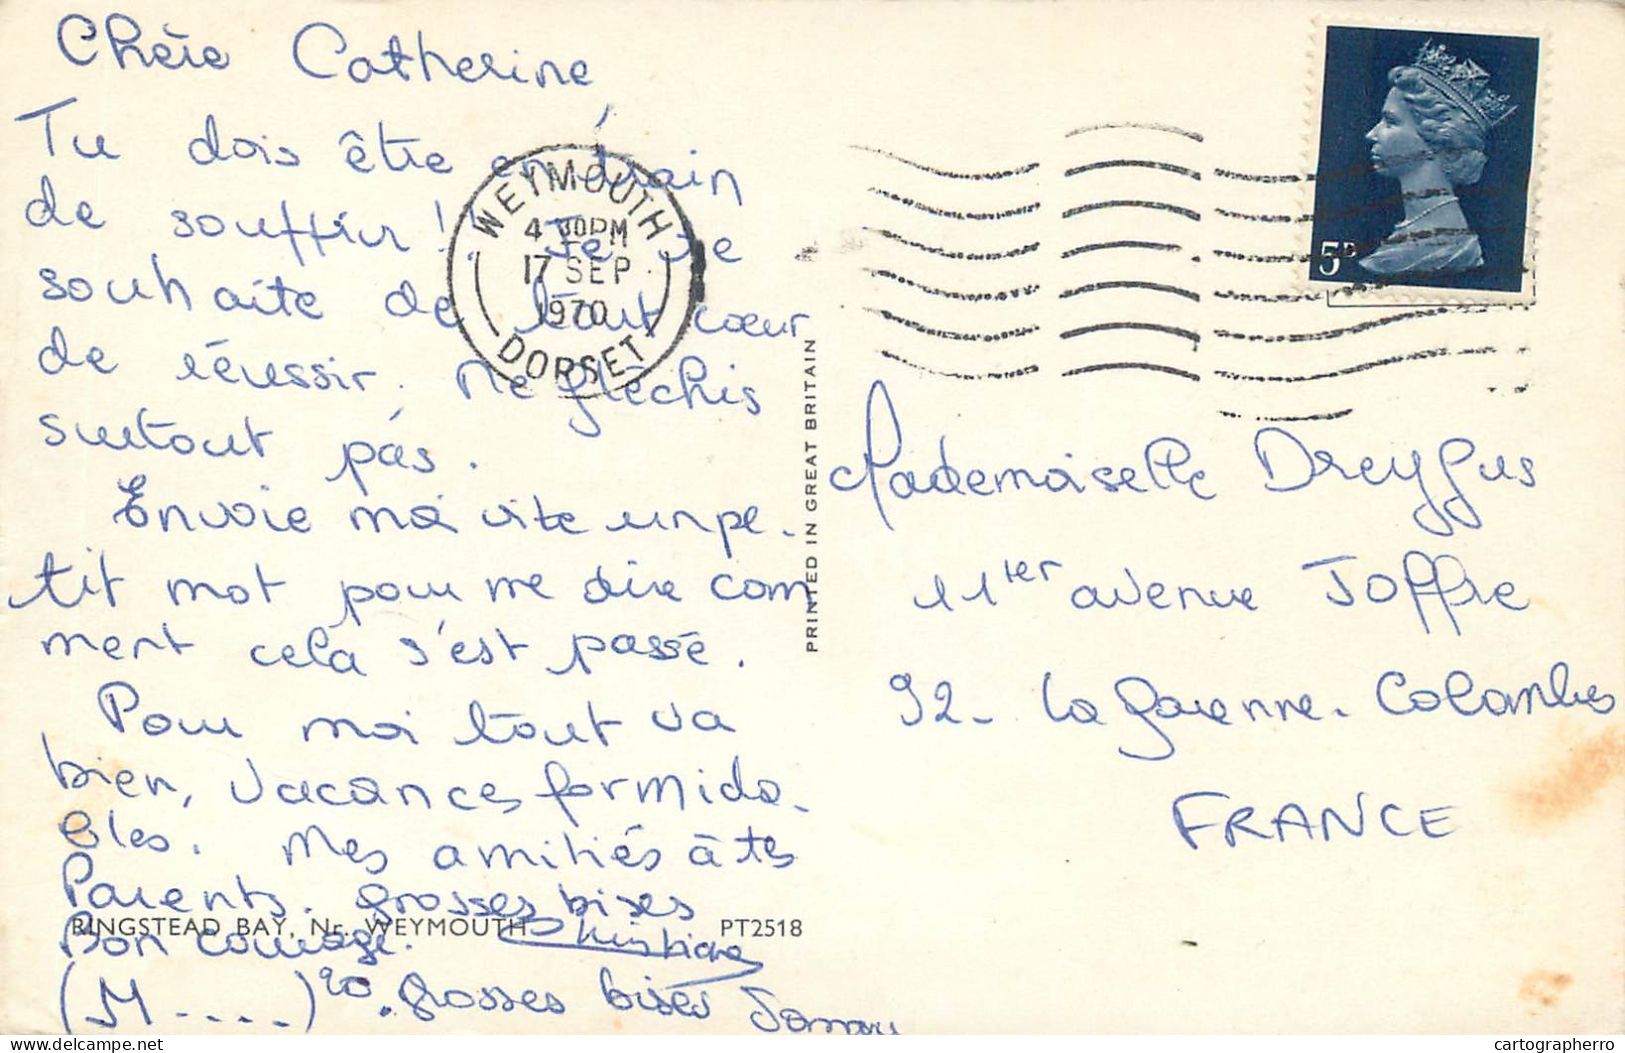 Chère Catherine
Tu dois être en train
de souffrir ! Je te
souhaite de tout cœur
de réussir. Ne fléchis
surtout pas.
Envoie moi vite un pe-
tit mot pour me dire com
ment cela s'est passé.
Pour moi tout va
bien, vacances formida-
bles. Mes amitiés à tes
Parents. grosses bises
Bon courage. Christiane
(M....)²⁰ . grosses bises
RINGSTEAD BAY, Nr. WEYMOUTH
PT2518
PRINTED IN GREAT BRITAIN
WEYMOUTH
4 30PM
17 SEP
1970
DORSET
5D
Mademoiselle Dreyfus
11ter avenue Joffre
92- La Garenne-Colombes
FRANCE
delcampe.net
cartographerro